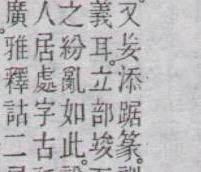 又妄添踞篆。訓
義耳。立部竣
之紛亂如此。
人居處字古
廣雅釋詁二